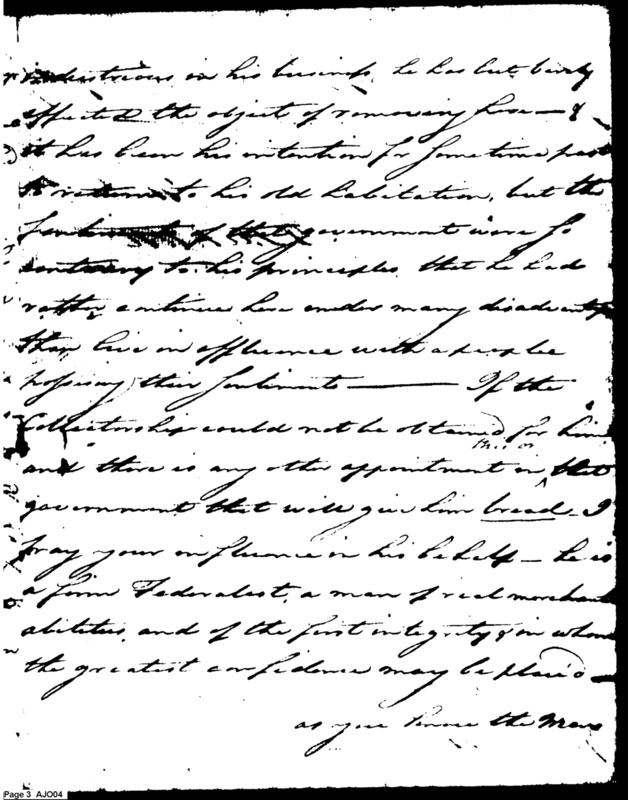 industrious in his business, he has but barely
effected the object of removing here — &
it has been his intention for sometime past
to return to his old habitation, but the
sentiments of that government were so
contrary to his principles, that he had
rather continue here under many disadvantages
than live in affluence with a people
possessing their sentiments ——— If the
Collectorship could not be obtained for him
this or
and there is any other appointment in that
government that will give him bread — I
pray your influence in his behalf — he is
a firm Federalist, a man of real merchant
abilities, and of the first integrity & in whom
the greatest confidence may be placed —
as you know the Man
Page 3 AJO04